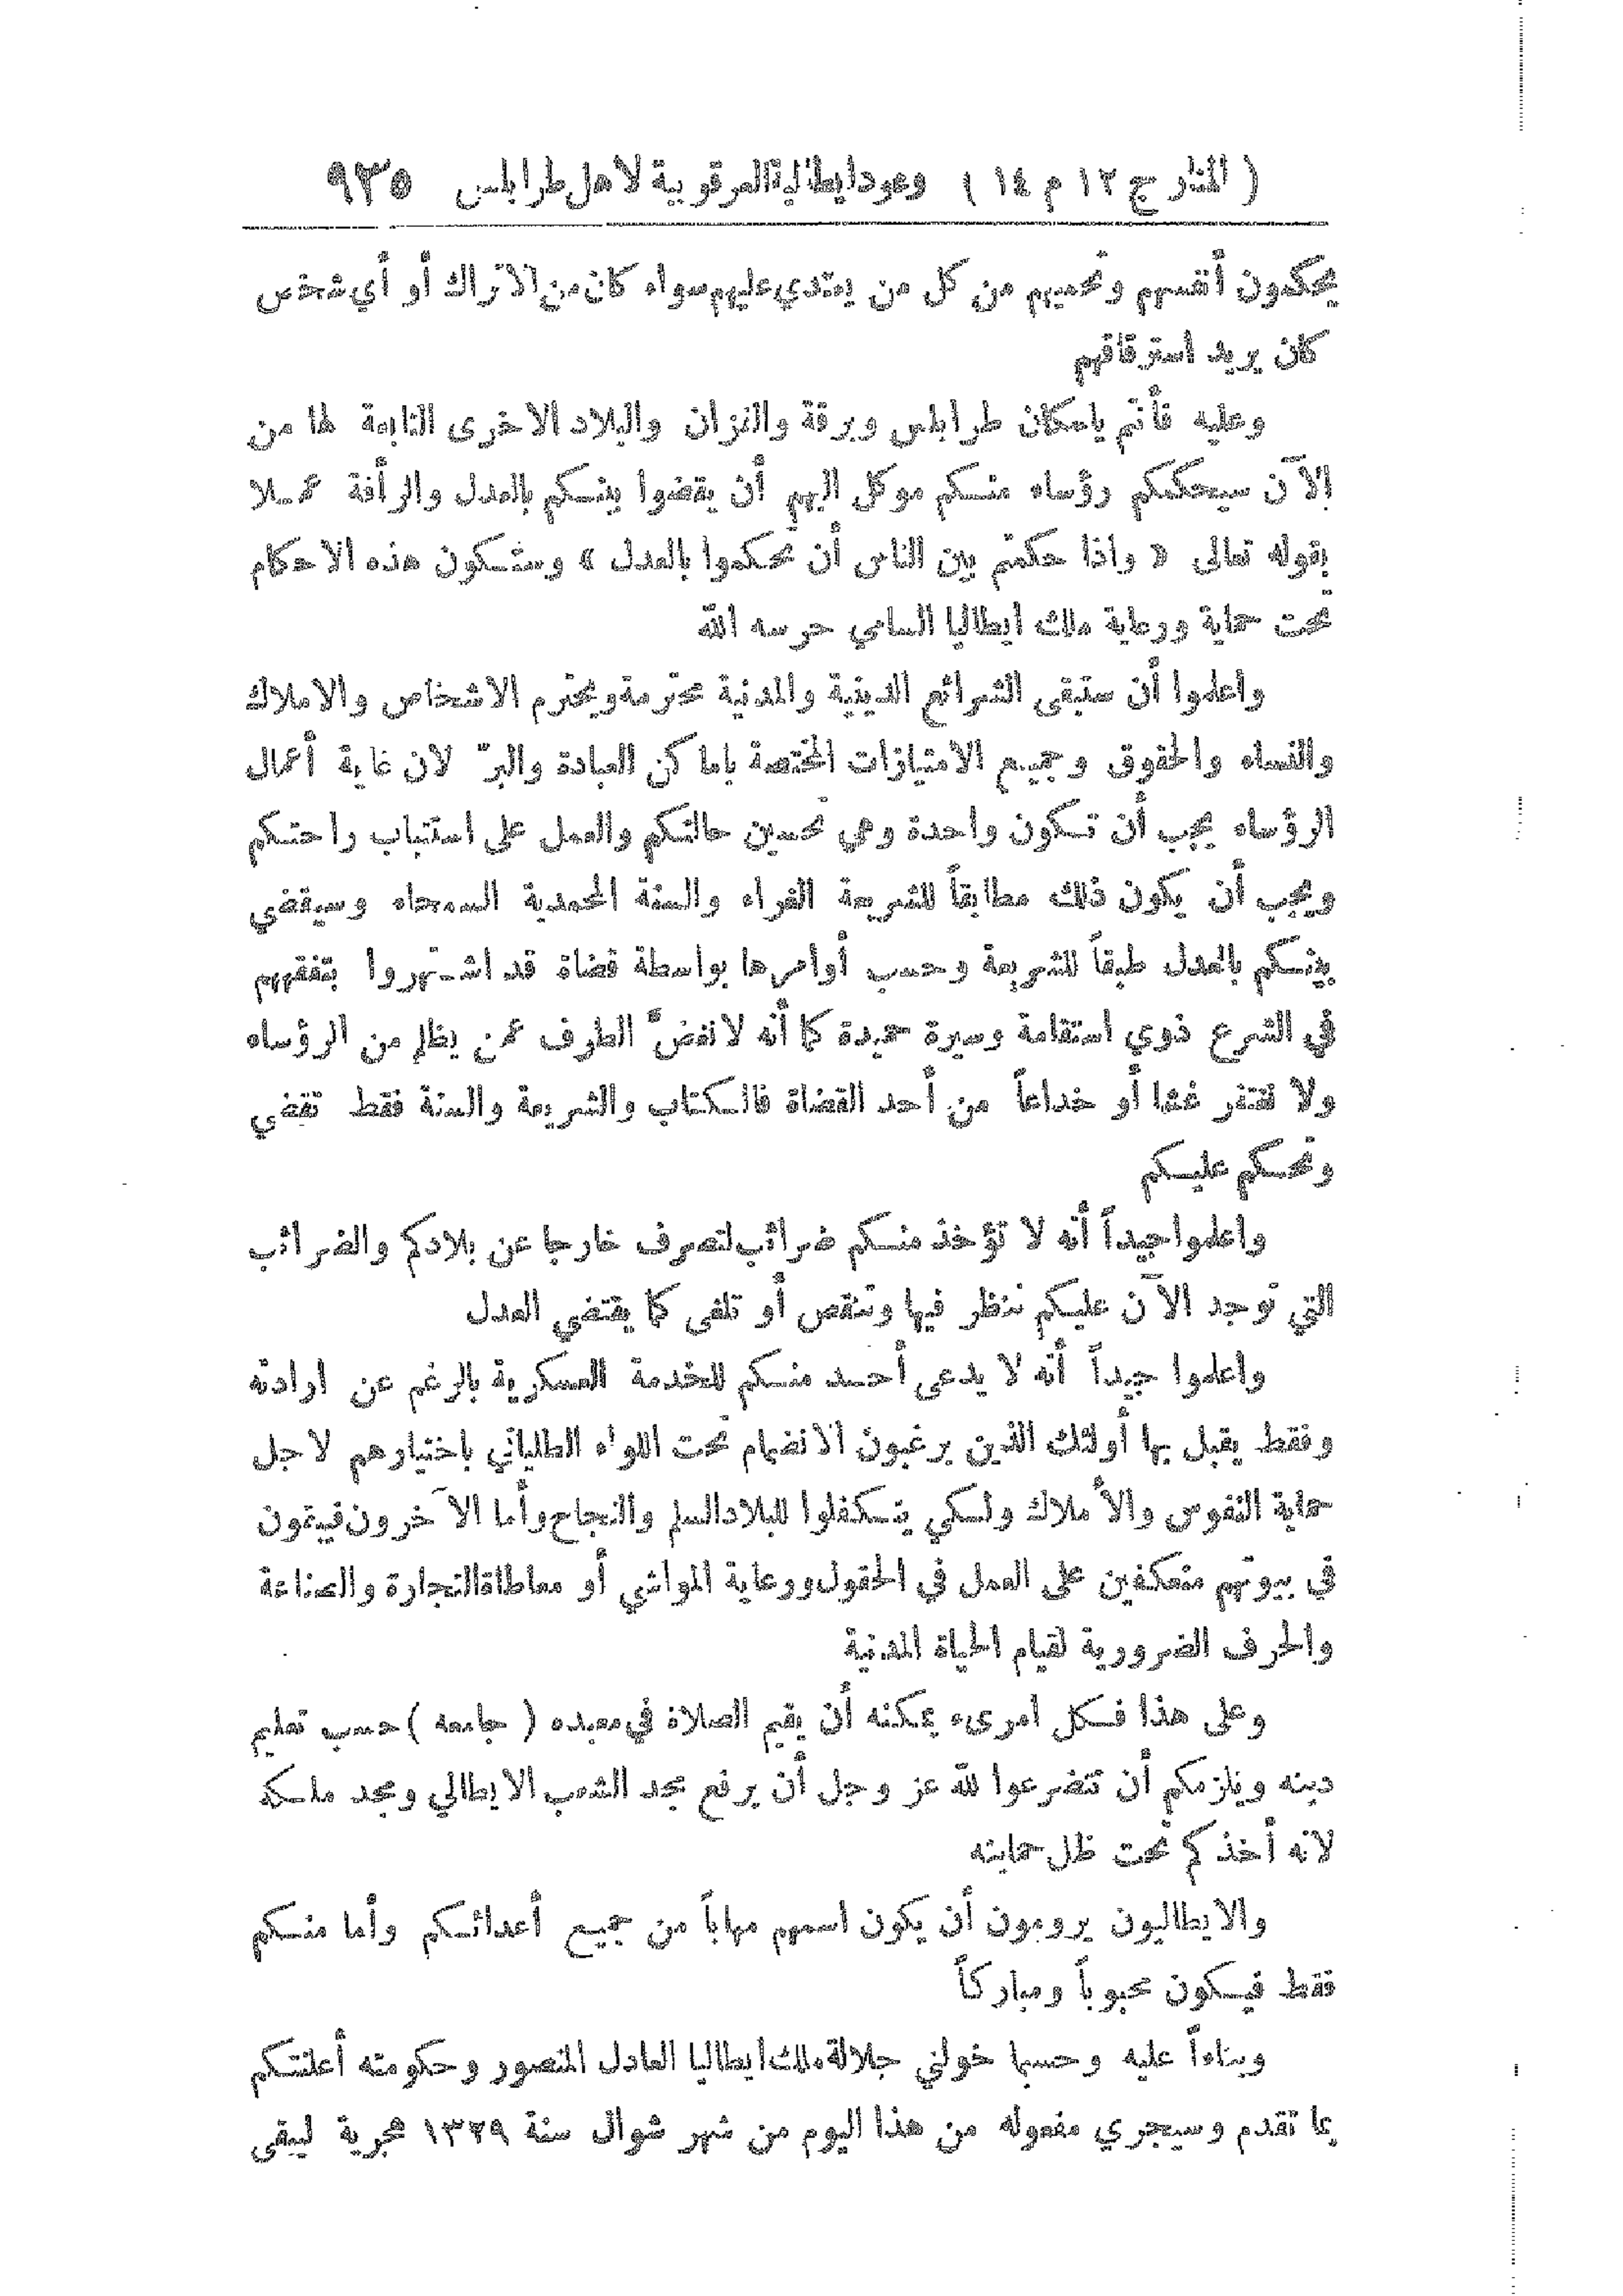 ( المنار ج ١٢ م ١٤ ) وعود ايطالية العرقوبية لاهل طرابلس ٩٣٥
يحكمون أنفسهم ونحميهم من كل من يعتدي عليهم سواء كان من الاتراك أو أي شخص
كان يريد استرقاقهم
وعليه فأنتم ياسكان طرابلس وبرقة والفزان والبلاد الاخرى التابعة لها من
الآن سيحكمكم رؤساء منكم موكل اليهم أن يقضوا بينكم بالعدل والرأفة عملا
بقوله تعالى « واذا حكمتم بين الناس أن تحكموا بالعدل » وستكون هذه الاحكام
تحت حماية ورعاية ملك ايطاليا السامي حرسه الله
واعلموا أن ستبقى الشرائع الدينية والمدنية محترمة ويحترم الاشخاص والاملاك
والنساء والحقوق وجميع الامتيازات المختصة باماكن العبادة والبرّ لان غاية أعمال
الرؤساء يجب أن تكون واحدة وهي تحسين حالتكم والعمل على استتباب راحتكم
ويجب أن يكون ذلك مطابقاً للشريعة الغراء والسنة المحمدية السمحاء وسيقضي
بينكم بالعدل طبقاً للشريعة وحسب أوامرها بواسطة قضاة قد اشتهروا بتفقههم
في الشرع ذوي استقامة وسيرة حميدة كما أنه لا نغضّ الطرف عمن يظلم من الرؤساء
ولا نغتفر غشا أو خداعاً من أحد القضاة فالكتاب والشريعة والسنة فقط تقضي
وتحكم عليكم
واعلموا جيداً أنه لا تؤخذ منكم ضرائب لتصرف خارجا عن بلادكم والضرائب
التي توجد الآن عليكم ننظر فيها وتنقص أو تلغى كما يقتضي العدل
واعلموا جيداً أنه لا يدعى أحد منكم للخدمة العسكرية بالرغم عن ارادته
وفقط يقبل بها أولئك الذين يرغبون الانضمام تحت اللواء الطلياني باختيارهم لاجل
حماية النفوس والأملاك ولكي يتكفلوا للبلاد السلم والنجاح وأما الآخرون فيبقون
في بيوتهم منعكفين على العمل في الحقول ورعاية المواشي أو معاطاة التجارة والصناعة
والحرف الضرورية لقيام الحياة المدنية
وعلى هذا فكل امرىء يمكنه أن يقيم الصلاة في معبده ( جامعه ) حسب تعليم
دينه ويلزمكم أن تتضرعوا لله عز وجل أن يرفع مجد الشعب الايطالي ومجد ملكه
لانه أخذكم تحت ظل حمايته
والايطاليون يرومون أن يكون اسمهم مهاباً من جميع أعدائكم وأما منكم
فقط فيكون محبوباً ومباركاً
وبناءاً عليه وحسبما خولني جلالة ملك ايطاليا العادل المنصور وحكومته أعلنتكم
بما تقدم وسيجري مفعوله من هذا اليوم من شهر شوال سنة ١٣٢٩ هجرية ليبقى